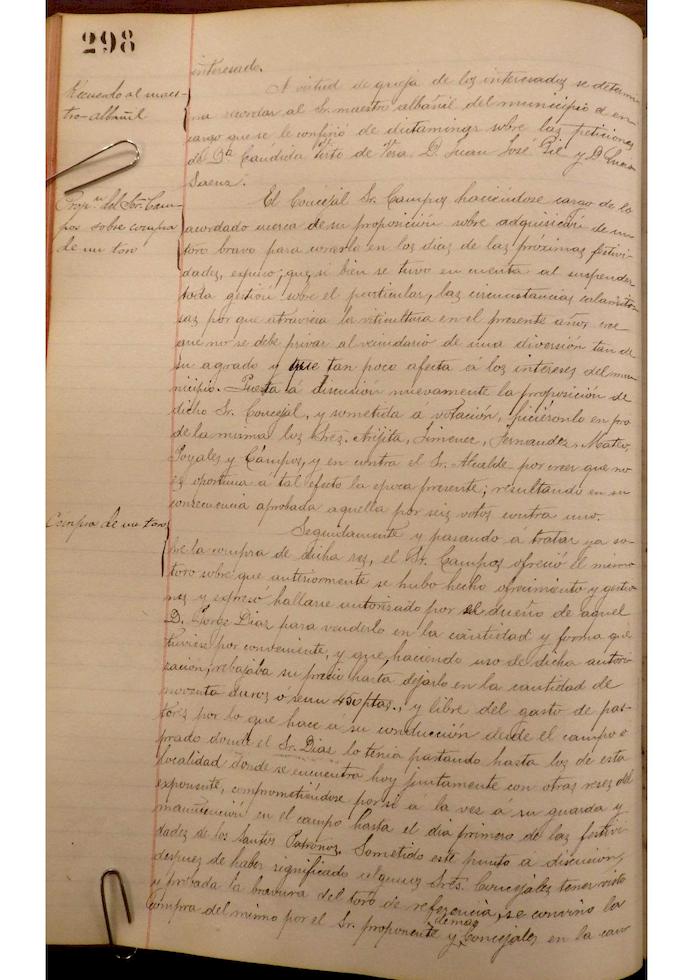 298
interesado.
Recuerdo al maes-
tro-albañil
A virtud de queja de los interesados se determi-
na recordar al Sr. maestro albañil del municipio el en-
cargo que se le confirió de dictaminar sobre las peticiones
de Dª Cándida Pinto de Vera, D. Juan José Pie y Dª
Saenz.
Propⁿ del Sr. Cam-
pos sobre compra
de un toro
El Concejal Sr. Campos haciéndose cargo de lo
acordado acerca de su proposición sobre adquisición de un
toro bravo para correrlo en los días de las próximas festivi-
dades, expuso; que si bien se tuvo en cuenta al suspender
toda gestión sobre el particular, las circunstancias calamito-
sas por que atraviesa la viticultura en el presente año, cree
que no se debe privar al vecindario de una diversión tan de
su agrado y que tan poco afecta á los intereses del mu-
nicipio. Puesta á discusión nuevamente la proposición de
dicho Sr. Concejal, y sometida a votación, hiciéronlo en pro
de la misma los Sres. Arijita, Jimenez, Fernandez, Mateo,
Poyales y Campos, y en contra el Sr. Alcalde por creer que no
es oportuna a tal efecto la epoca presente; resultando en su
consecuencia aprobada aquella por seis votos contra uno.
Compra de un toro
Seguidamente y pasando á tratar ya so-
bre la compra de dicha res, el Sr. Campos ofreció el mismo
toro sobre que anteriormente se hubo hecho ofrecimiento y gestio-
nes y expresó hallarse autorizado por el dueño de aquel
D. Jorge Diaz para venderlo en la cantidad y forma que
tuviese por conveniente, y que, haciendo uso de dicha autori-
zación, rebajaba su precio hasta dejarlo en la cantidad de
noventa duros ó sean 450 ptas., y libre del gasto de pas-
tores por lo que hace á su conducción desde el campo ó
prado donde el Sr. Diaz lo tenia pastando hasta los de esta
localidad donde se encuentra hoy juntamente con otras reses del
exponente, comprometiéndose por si a la vez á su guarda y
manutención en el campo hasta el dia primero de las festivi-
dades de los Santos Patronos. Sometido este punto a discusion,
despues de haber significado algunos Sres. Concejales tener visto
y probada la bravura del toro de referencia, se convino la
compra del mismo por el Sr. proponente y demas Concejales en la can-